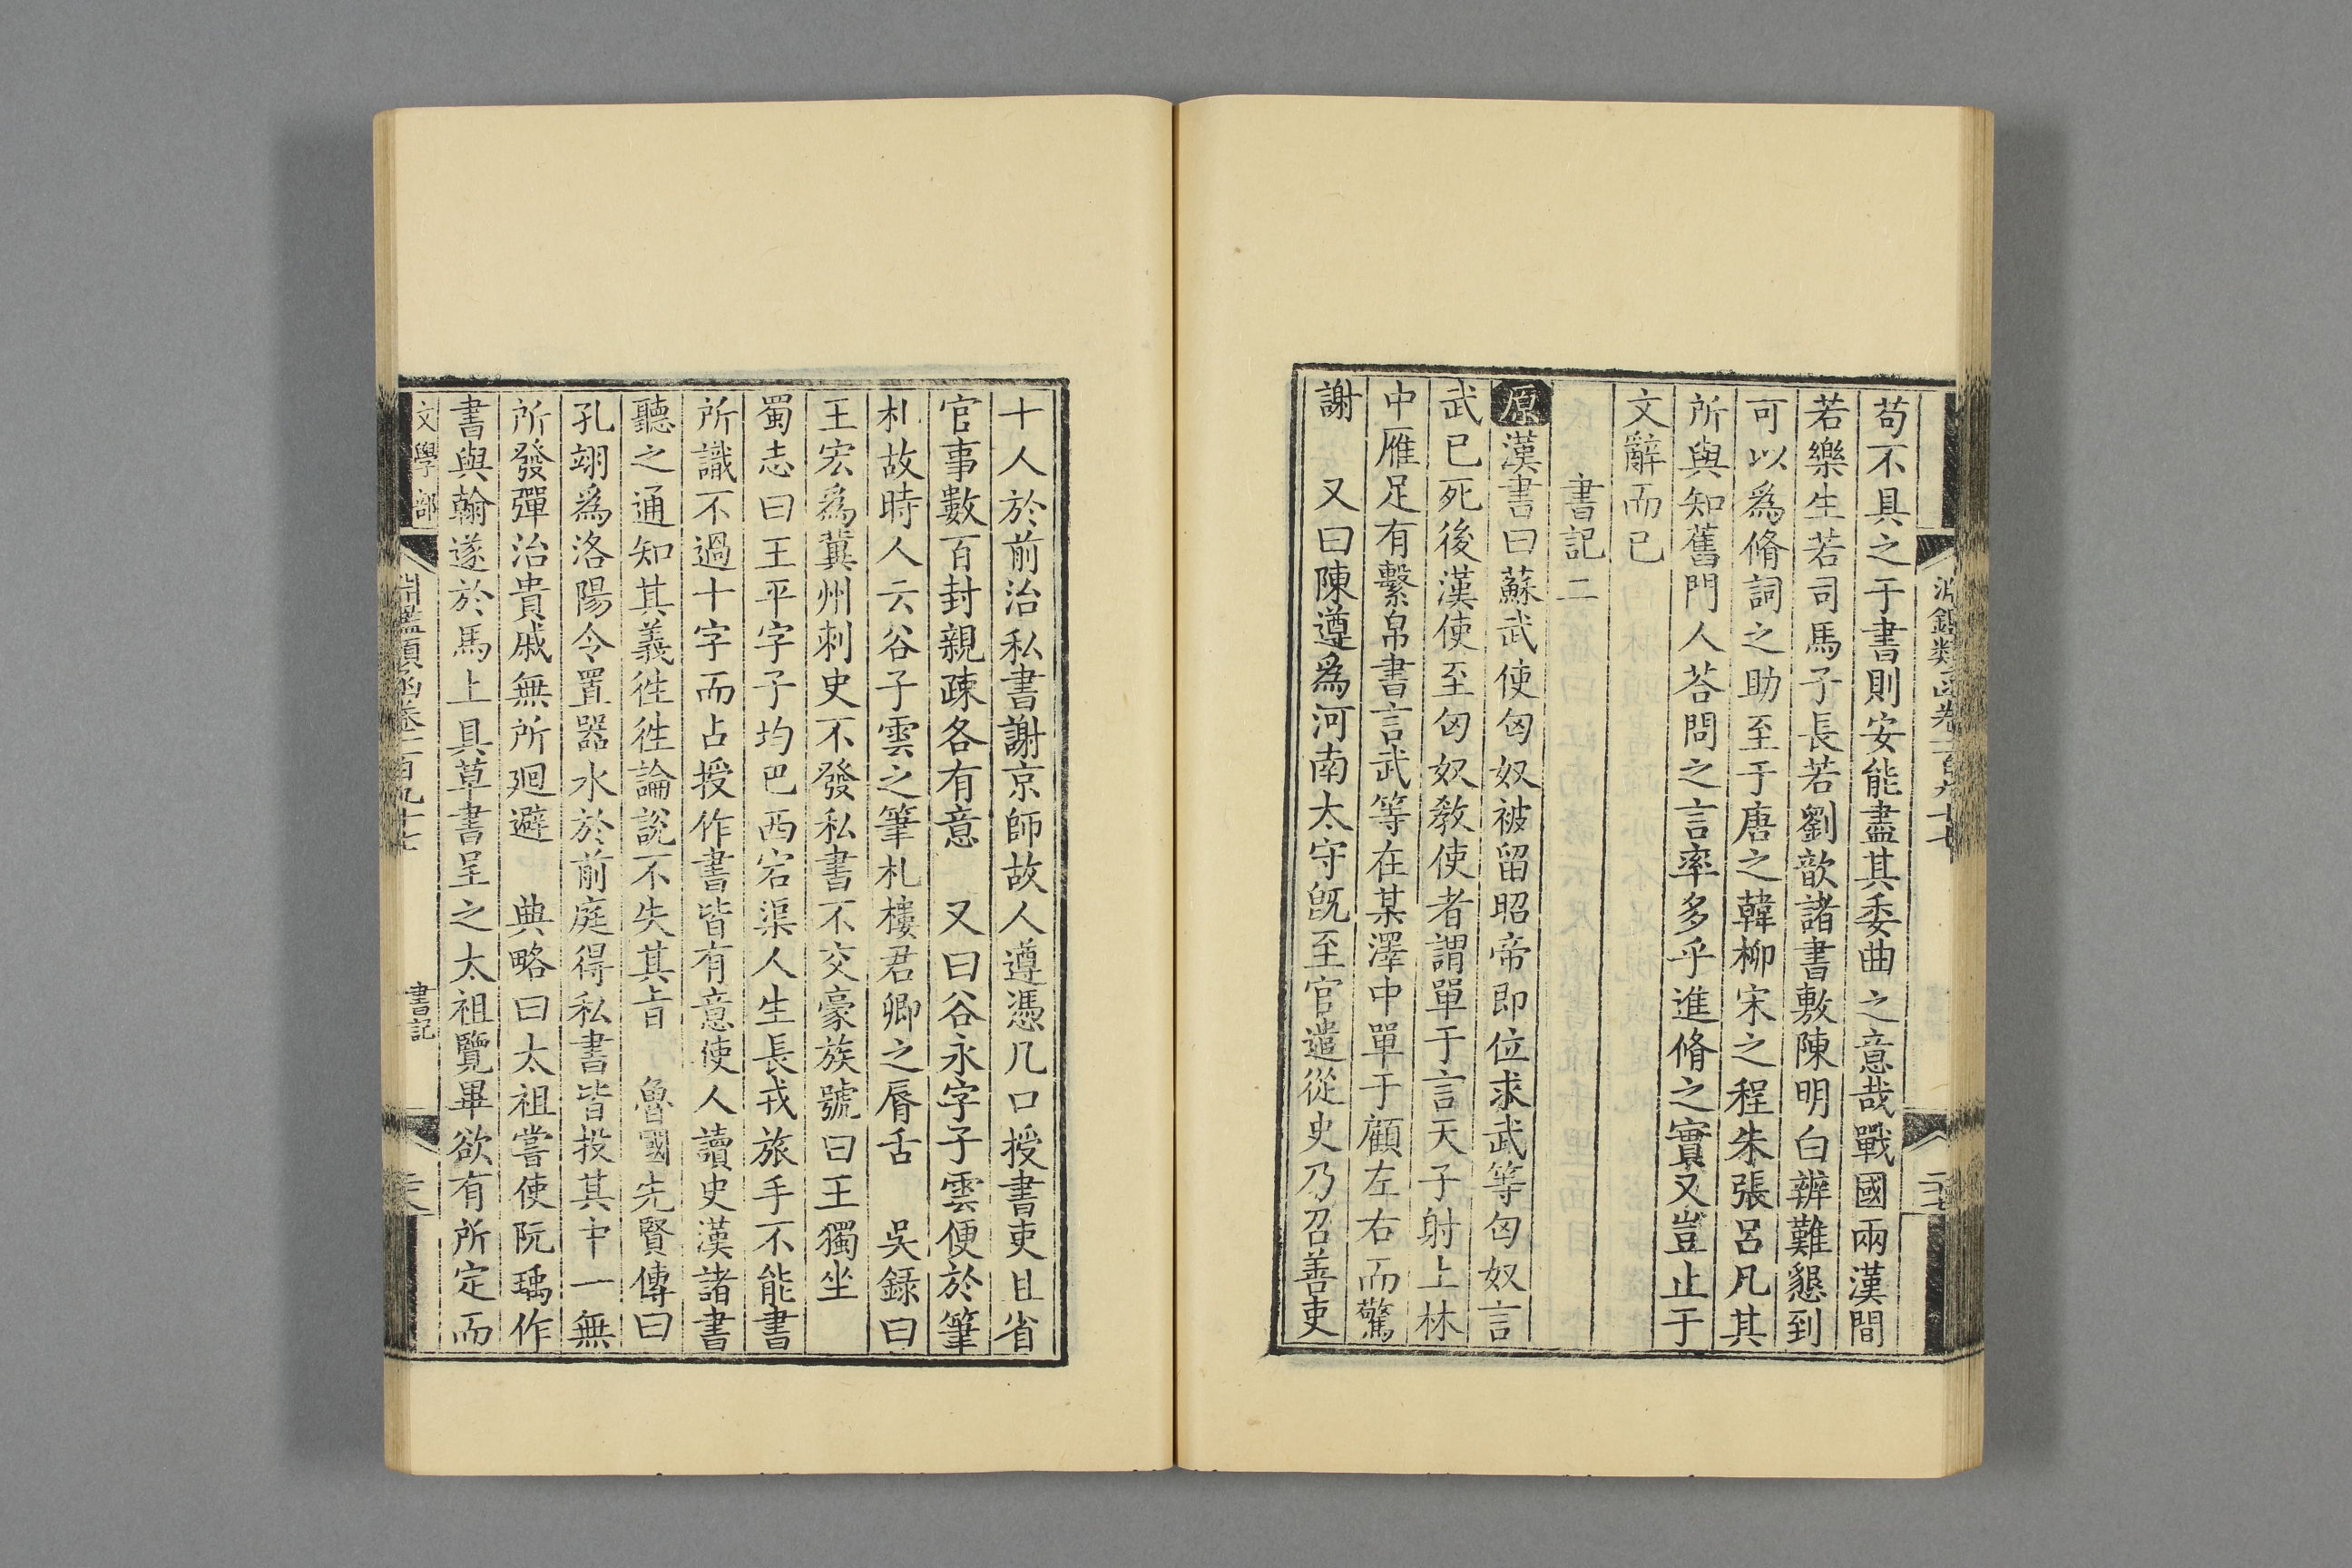 淵鑑類函卷一百九十七
苟不具之于書則安能盡其委曲之意哉戰國兩漢間
若樂生若司馬子長若劉歆諸書敷陳明白辨難懇到
可以爲脩詞之助至于唐之韓柳宋之程朱張呂凡其
所與知舊門人荅問之言率多乎進脩之實又豈止于
文辭而已
書記二
原漢書曰蘇武使匈奴被留昭帝即位求武等匈奴言
武已死後漢使至匈奴敎使者謂單于言天子射上林
中雁足有繫帛書言武等在某澤中單于顧左右而驚
謝 又曰陳遵爲河南太守旣至官遣從史乃召善吏
十人於前治私書謝京師故人遵憑几口授書吏且省
官事數百封親疎各有意 又曰谷永字子雲便於筆
札故時人云谷子雲之筆札樓君卿之脣舌 吳録曰
王宏爲冀州刺史不發私書不交豪族號曰王獨坐
蜀志曰王平字子均巴西宕渠人生長戎旅手不能書
所識不過十字而占授作書皆有意使人讀史漢諸書
聽之通知其義徃徃論說不失其旨 魯國先賢傳曰
孔翊爲洛陽令置器水於前庭得私書皆投其中一無
所發彈治貴戚無所廻避 典略曰太祖嘗使阮瑀作
書與翰遂於馬上具草書呈之太祖覽畢欲有所定而
文學部 淵鑑類函卷一百九十七 書記